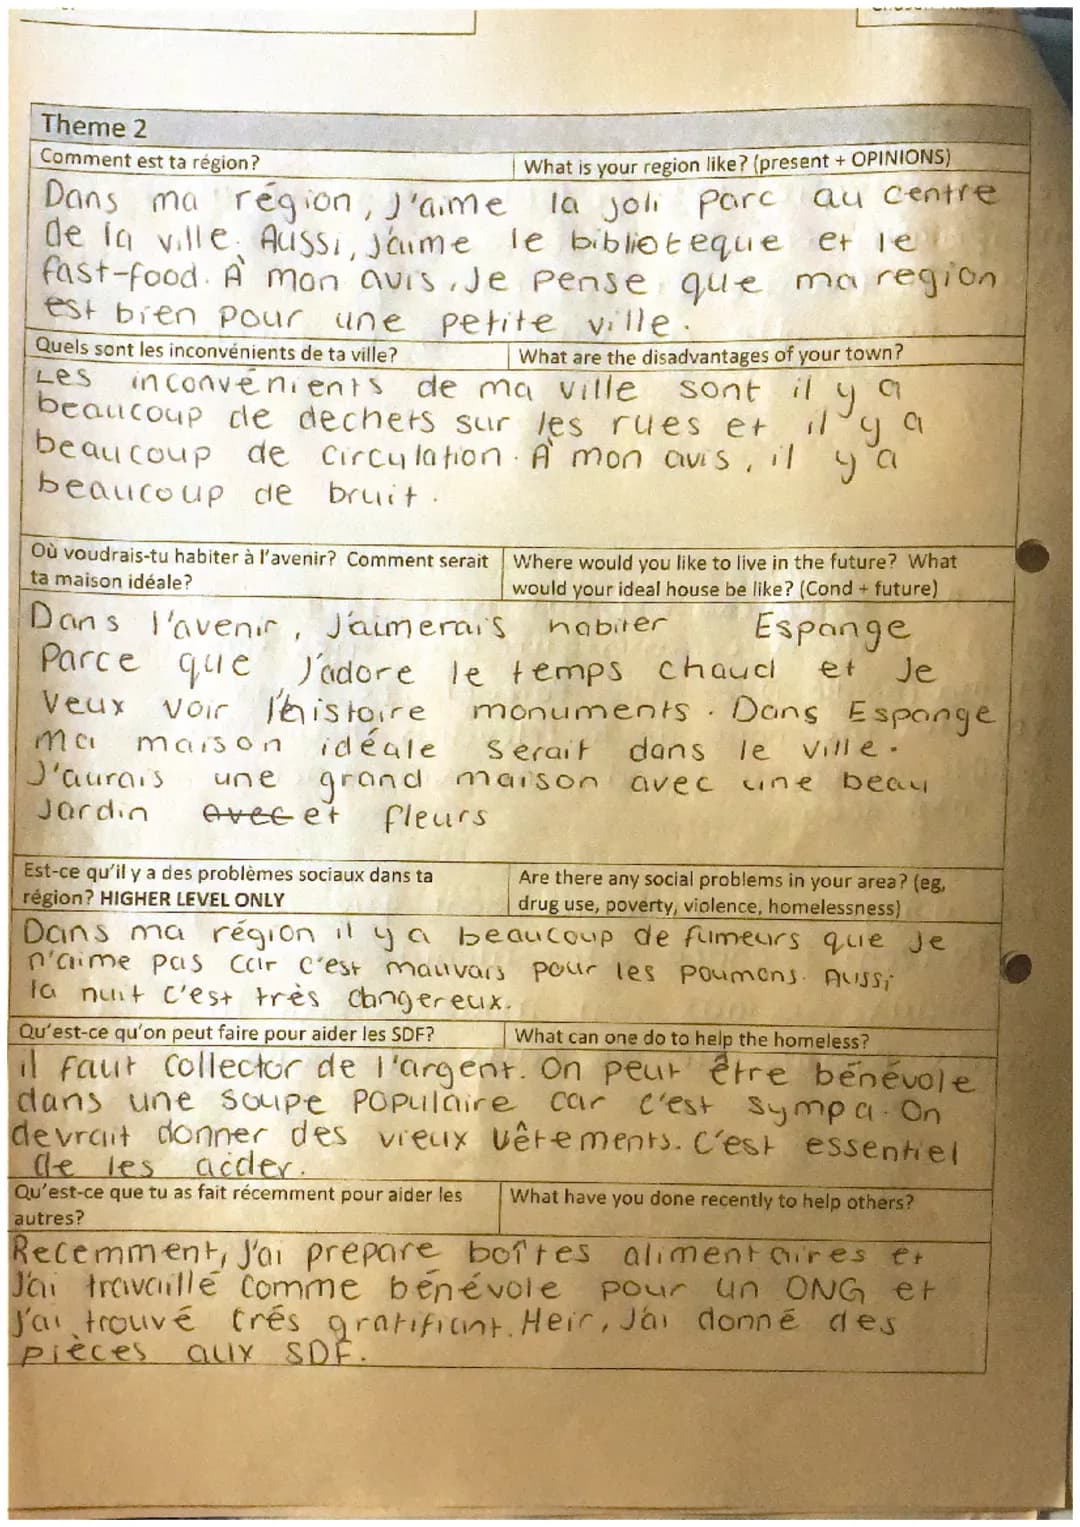 Theme 2
Comment est ta région?
What is your region like? (present + OPINIONS)
Dans ma région, J'aime la joli parc au centre
de la ville. Aussi, J'aime le biblioteque et le
fast-food. À mon avis, Je pense que ma region
est bien pour une petite ville.
Quels sont les inconvénients de ta ville?
What are the disadvantages of your town?
Les inconvénients de ma ville sont il y a
beaucoup de dechets sur les rues et il y a
beaucoup de circulation. À mon avis, il y a
beaucoup de bruit.
Où voudrais-tu habiter à l'avenir? Comment serait
ta maison idéale?
Where would you like to live in the future? What
would your ideal house be like? (Cond + future)
Dans l'avenir, J'aimerais habiter Espange
Parce que J'adore le temps chaud et Je
Veux voir l'histoire monuments. Dans Espange
ma maison idéale serait dans le ville.
J'aurais une grand maison avec une beau
Jardin avec et fleurs
Est-ce qu'il y a des problèmes sociaux dans ta
région? HIGHER LEVEL ONLY
Are there any social problems in your area? (eg,
drug use, poverty, violence, homelessness)
Dans ma région il y a beaucoup de fumeurs que Je
n'aime pas car c'est mauvais pour les poumons. Aussi
la nuit c'est très dangereux.
Qu'est-ce qu'on peut faire pour aider les SDF?
What can one do to help the homeless?
il faut collector de l'argent. On peut être bénévole
dans une soupe populaire car c'est sympa. On
devrait donner des vieux vêtements. C'est essentiel
de les aider.
Qu'est-ce que tu as fait récemment pour aider les
autres?
What have you done recently to help others?
Recemment, J'ai prepare boîtes alimentaires et
J'ai travaillé comme bénévole pour un ONG et
J'ai trouvé trés gratifiant. Heir, J'ai donné des
pièces aux SDF.